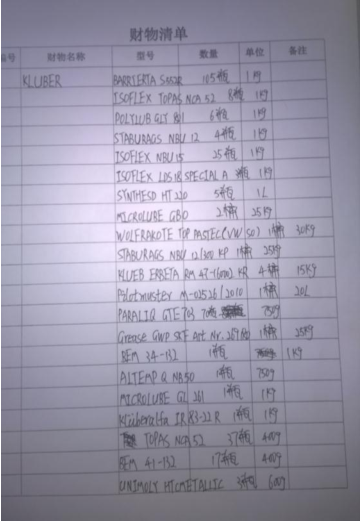 财物清单
号 财物名称 型号 数量 单位 备注
KLUBER BARRIERTA 165瓶 1Kg
ISOFLEX TOPAS NCA 52 8瓶 1Kg
POLYLUB GLY 801 6瓶 1Kg
STABURAGS NBU 12 4瓶 1Kg
ISOFLEX NBU 15 25瓶 1Kg
ISOFLEX LDS 18 SPECIAL A 瓶 1Kg
SYNTHESO HT 220 5瓶 1L
MICROLUBE GB0 2桶 25Kg
WOLFRAKOTE TOP PASTE (VW 50) 1桶 30Kg
STABURAGS NBU 12/300 KP 1桶 25Kg
KLUEB ERBETA RM 47-1600 KR 4桶 15Kg
Pilotmuster M-02526/2010 1桶 20L
PARALIQ GTE 703 70瓶 750g
Grease GWP SKF Art Nr. 1桶 25Kg
BEM 34-132 1瓶 1Kg
ALTEMP Q NB 50 1瓶 750g
MICROLUBE GL 261 1瓶 1Kg
Klüberalfa IR 83-22 R 1瓶 1Kg
TOPAS NCA 52 37瓶 400g
BEM 41-132 17瓶 400g
UNIMOLY HTC METALLIC 3瓶 600g